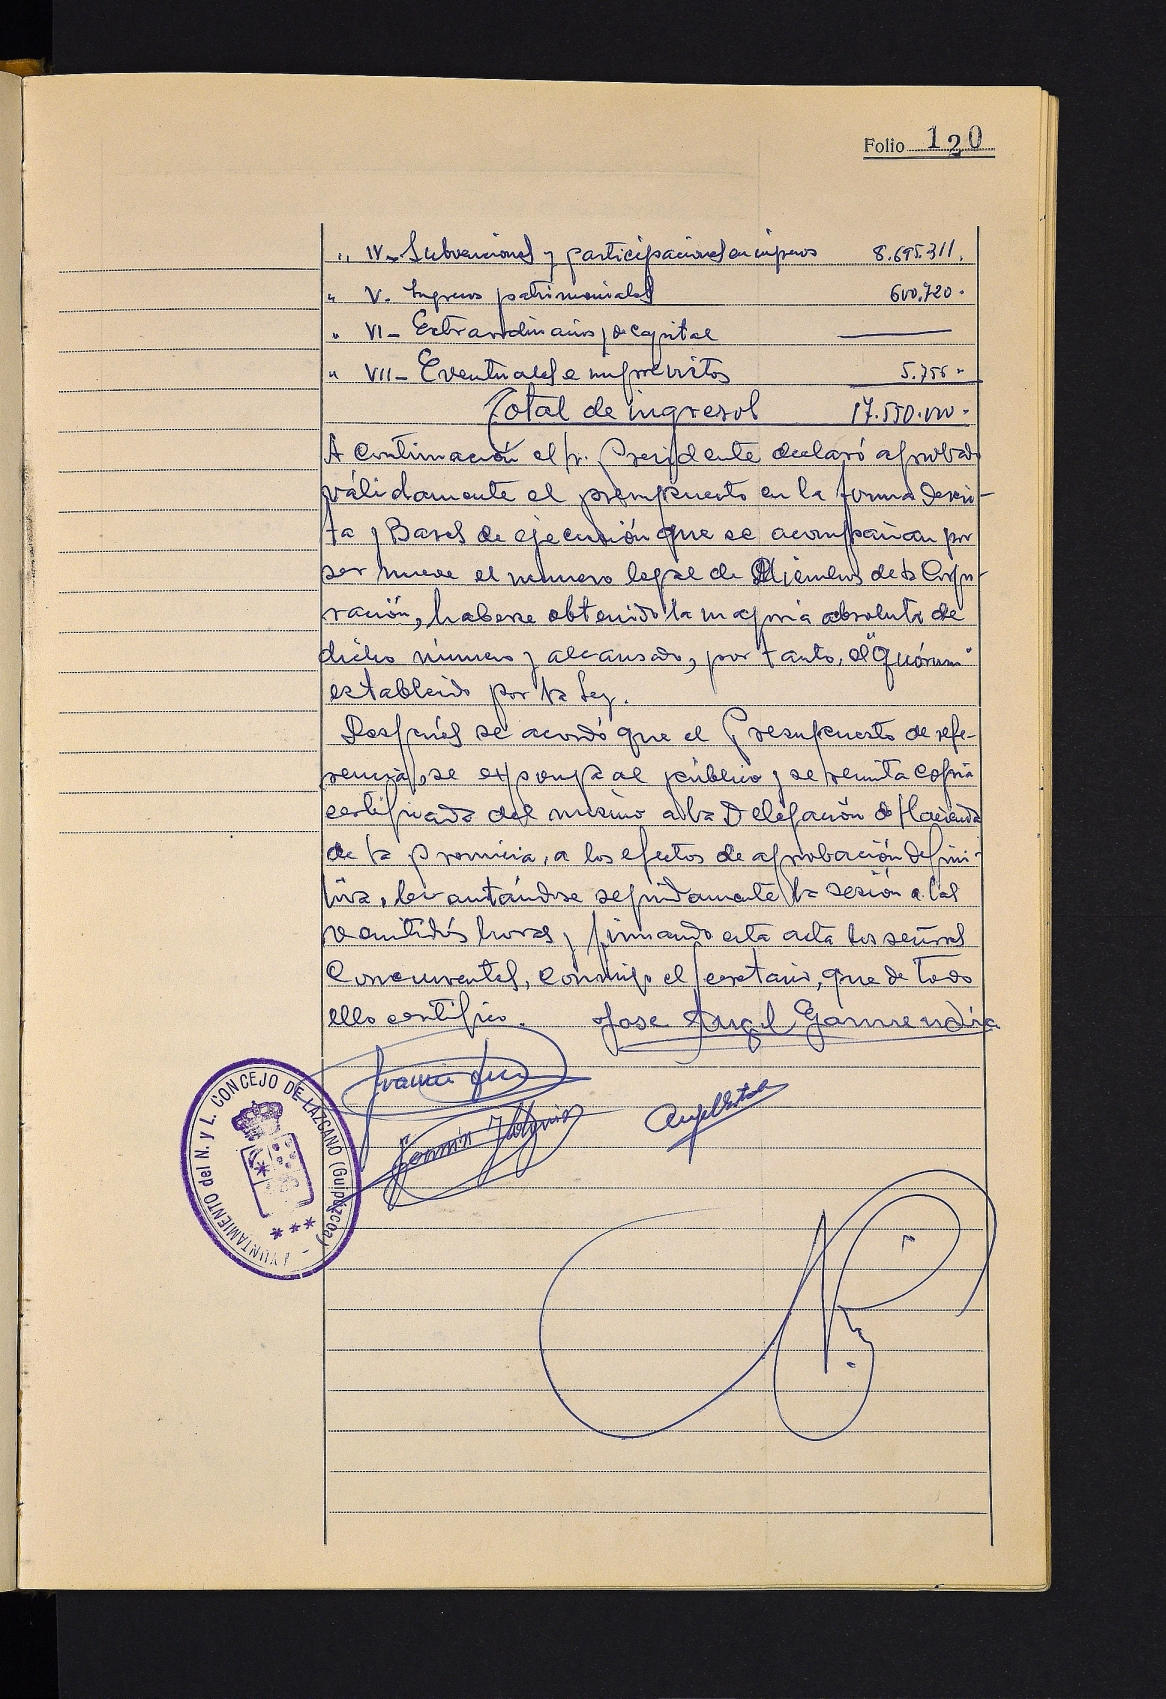 Folio 120
" IV- Subvenciones y participaciones en ingresos 8.695.311.
" V. Ingresos patrimoniales 600.720.-
" VI- Extraordinarios y de capital ———
" VII- Eventuales e imprevistos 5.755.-
Total de ingresos 17.550.000.-
A continuación el Sr. Presidente declaró aprobado
válidamente el presupuesto en la forma descri-
ta y Bases de ejecución que se acompañan por
ser nueve el número legal de Miembros de la Corpo-
ración, haberse obtenido la mayoría absoluta de
dicho número y alcanzado, por tanto, el "quórum"
establecido por la Ley.
Después se acordó que el Presupuesto de refe-
rencia, se exponga al público y se remita copia
certificada del mismo a la Delegación de Hacienda
de la provincia, a los efectos de aprobación defini-
tiva, levantándose seguidamente la sesión a las
veintidós horas y firmando esta acta los señores
Concurrentes, conmigo el Secretario, que de todo
ello certifico. Jose Angel Garmendia
AYUNTAMIENTO del N. y L. CONCEJO DE LAZCANO (Guipúzcoa)